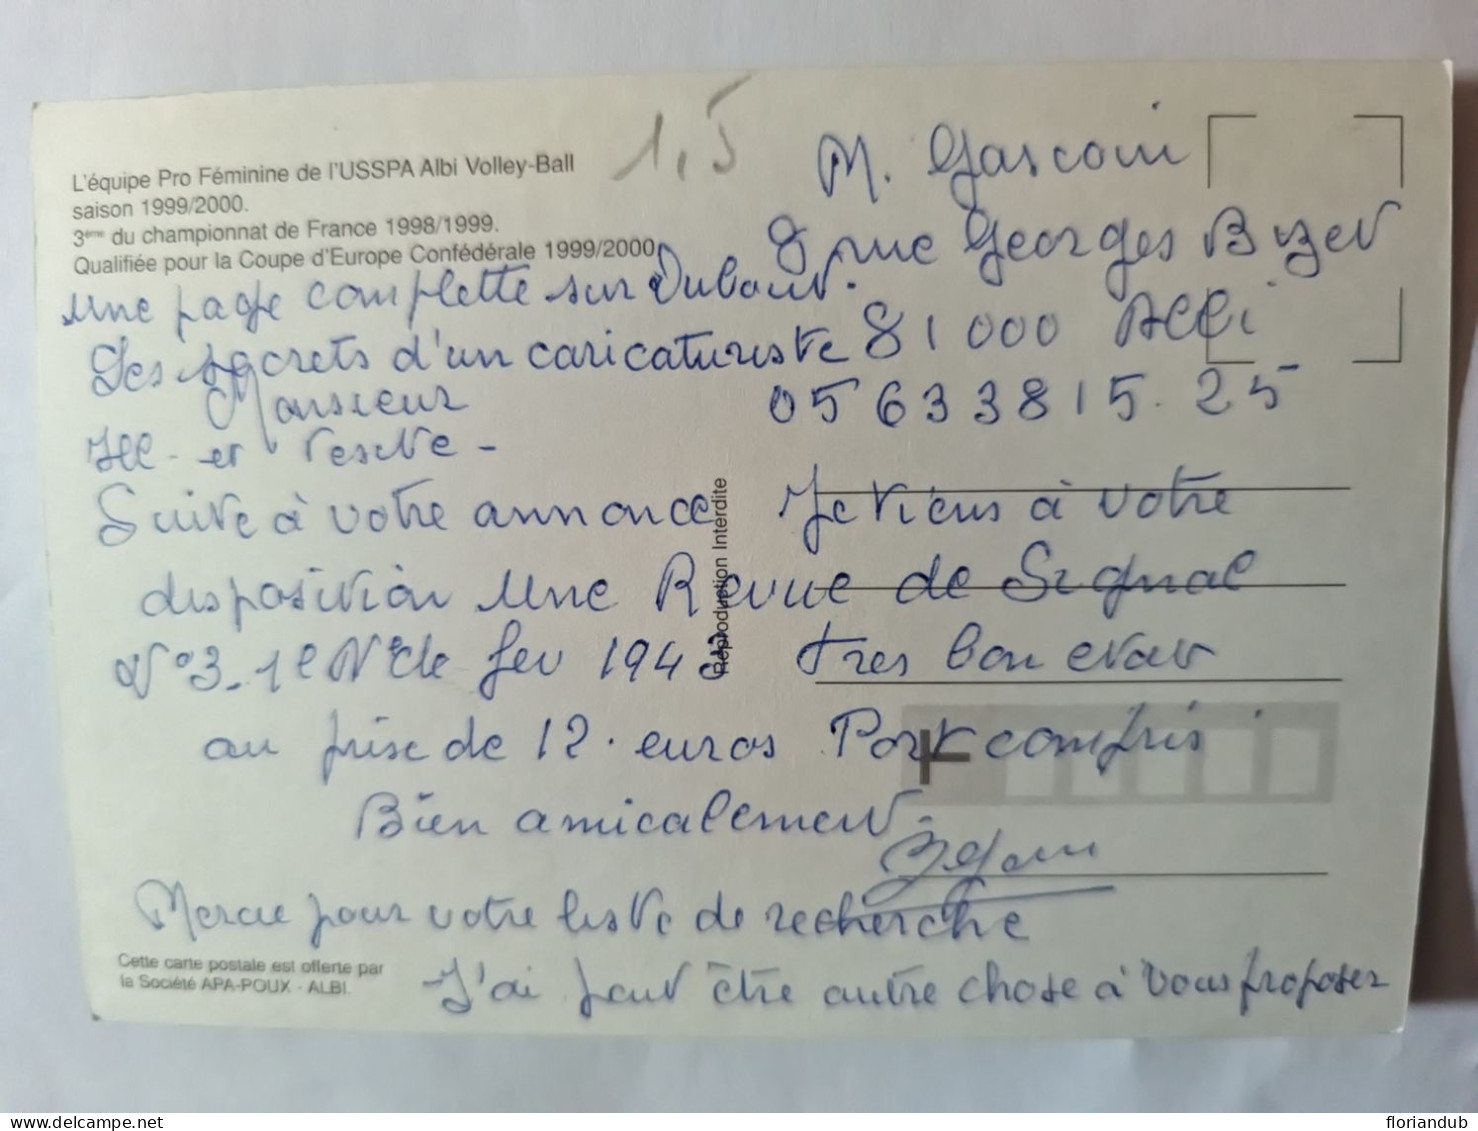 1,5
L'équipe Pro Féminine de l'USSPA Albi Volley-Ball
saison 1999/2000.
3ème du championnat de France 1998/1999.
Qualifiée pour la Coupe d'Europe Confédérale 1999/2000
M. Gascoin
8 rue Georges Bizet
81000 Albi
05 63 38 15. 25
une page complette sur Dubout.
Les secrets d'un caricaturiste
Monsieur
et reste -
Suite à votre annonce Je viens à votre
disposition une Revue de Signal
N°3. 1e N° de fev 1943 tres bon etat
au prix de 12. euros Port compris
Bien amicalement.
Merci pour votre liste de recherche
J'ai peut être autre chose à vous proposer
Reproduction Interdite
Cette carte postale est offerte par
la Société APA-POUX - ALBI.
floriandub